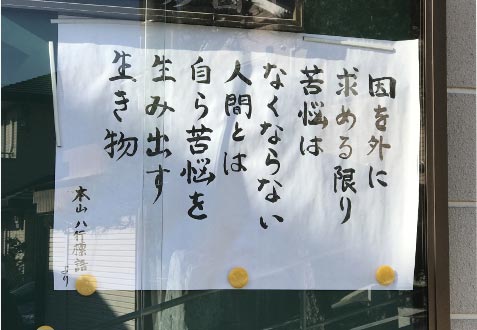 因を外に
求める限り
苦悩は
なくならない
人間とは
自ら苦悩を
生み出す
生き物
本山八行標語
より